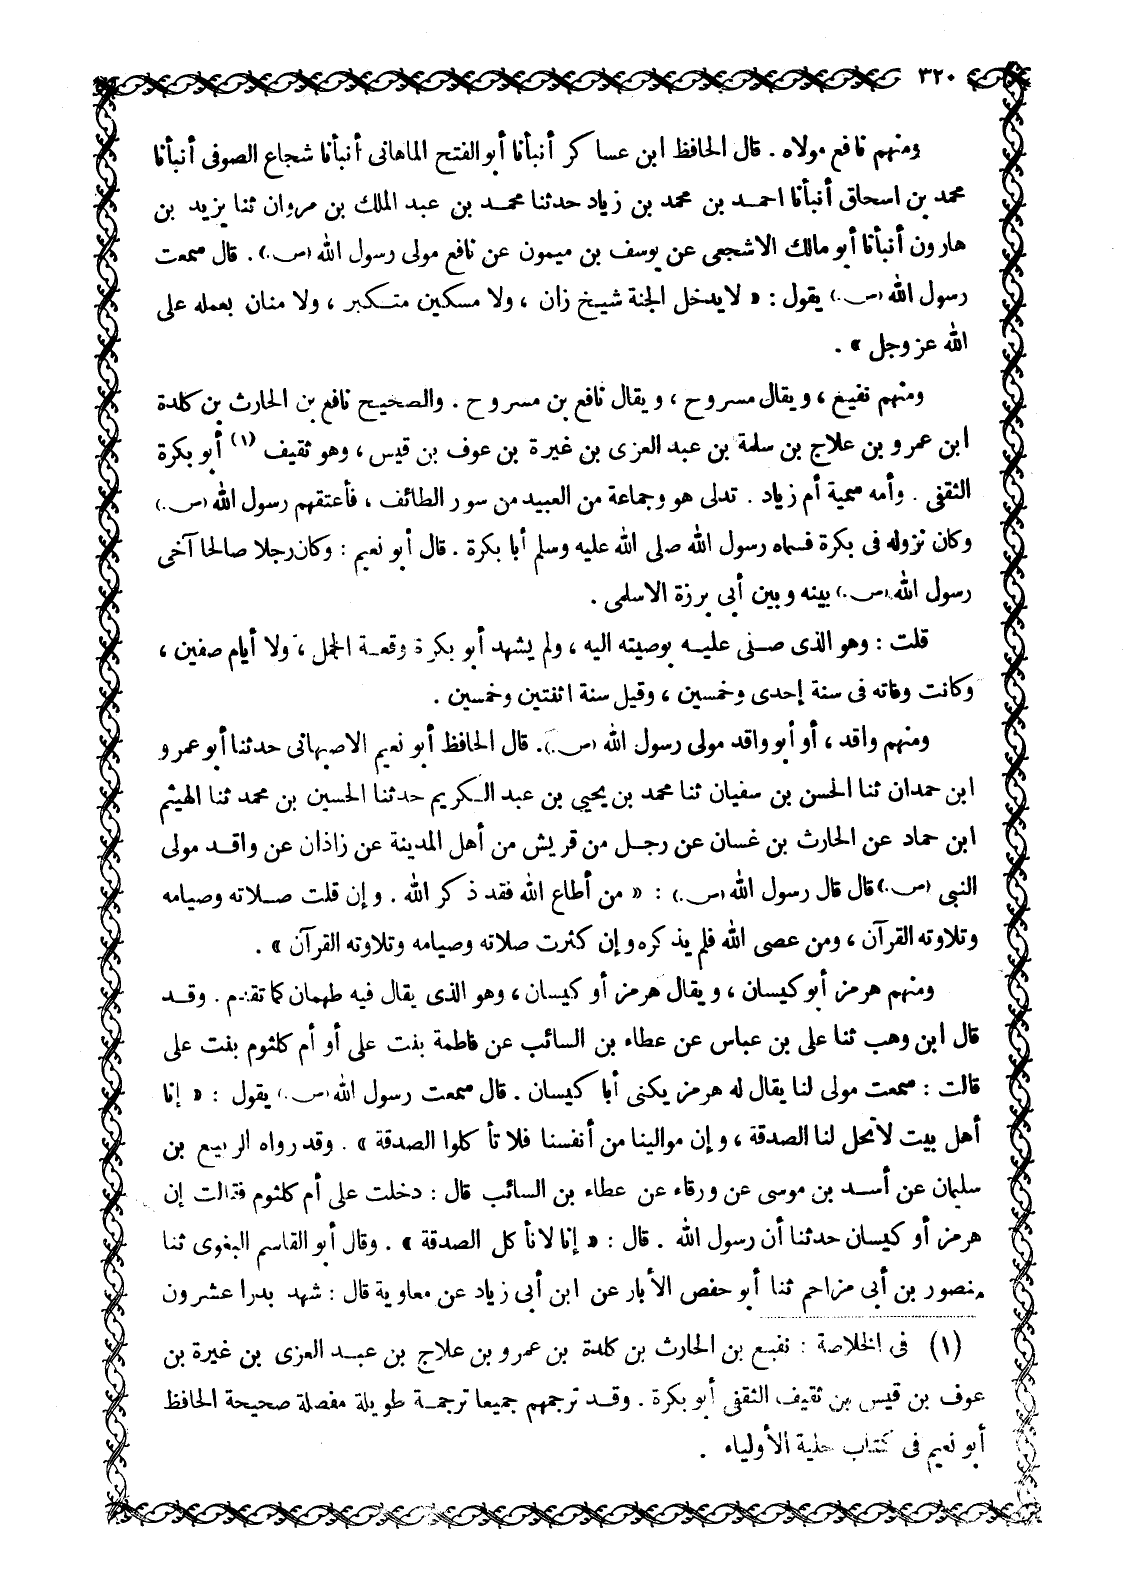 ٣٢٠
ومنهم نافع مولاه . قال الحافظ ابن عساكر أنبأنا أبو الفتح الماهانى أنبأنا شجاع الصوفى أنبأنا
محمد بن اسحاق أنبأنا احمد بن محمد بن زياد حدثنا محمد بن عبد الملك بن مروان ثنا يزيد بن
هارون أنبأنا أبو مالك الاشجعى عن يوسف بن ميمون عن نافع مولى رسول الله (س.) . قال سمعت
رسول الله (س.) يقول : « لا يدخل الجنة شيخ زان ، ولا مسكين متكبر ، ولا منان بعمله على
الله عز وجل » .
ومنهم نفيع ، ويقال مسروح ، ويقال نافع بن مسروح . والصحيح نافع بن الحارث بن كلدة
ابن عمرو بن علاج بن سلمة بن عبد العزى بن غيرة بن عوف بن قيس ، وهو ثقيف (١) أبو بكرة
الثقفى . وأمه سمية أم زياد . تدلى هو وجماعة من العبيد من سور الطائف ، فأعتقهم رسول الله (س.)
وكان نزوله فى بكرة فسماه رسول الله صلى الله عليه وسلم أبا بكرة . قال أبو نعيم : وكان رجلا صالحا آخى
رسول الله (س.) بينه وبين أبى برزة الاسلمى .
قلت : وهو الذى صلى عليه بوصيته اليه ، ولم يشهد أبو بكرة وقعة الجمل ، ولا أيام صفين ،
وكانت وفاته فى سنة إحدى وخمسين ، وقيل سنة اثنتين وخمسين .
ومنهم واقد ، أو أبو واقد مولى رسول الله (س.) . قال الحافظ أبو نعيم الاصبهانى حدثنا أبو عمرو
ابن حمدان ثنا الحسن بن سفيان ثنا محمد بن يحيى بن عبد الكريم حدثنا الحسين بن محمد ثنا الهيثم
ابن حماد عن الحارث بن غسان عن رجل من قريش من أهل المدينة عن زاذان عن واقد مولى
النبى (س.) قال قال رسول الله (س.) : « من أطاع الله فقد ذكر الله . وإن قلت صلاته وصيامه
وتلاوته القرآن ، ومن عصى الله فلم يذكره وإن كثرت صلاته وصيامه وتلاوته القرآن » .
ومنهم هرمز أبو كيسان ، ويقال هرمز أو كيسان ، وهو الذى يقال فيه طهمان كما تقدم . وقد
قال ابن وهب ثنا على بن عباس عن عطاء بن السائب عن فاطمة بنت على أو أم كلثوم بنت على
قالت : سمعت مولى لنا يقال له هرمز يكنى أبا كيسان . قال سمعت رسول الله (س.) يقول : « إنا
أهل بيت لا تحل لنا الصدقة ، وإن موالينا من أنفسنا فلا تأكلوا الصدقة » . وقد رواه الربيع بن
سليمان عن أسد بن موسى عن ورقاء عن عطاء بن السائب قال : دخلت على أم كلثوم فقالت إن
هرمز أو كيسان حدثنا أن رسول الله . قال : « إنا لا نأكل الصدقة » . وقال أبو القاسم البغوى ثنا
منصور بن أبى مزاحم ثنا أبو حفص الأبار عن ابن أبى زياد عن معاوية قال : شهد بدرا عشرون
(١) فى الخلاصة : نفيع بن الحارث بن كلدة بن عمرو بن علاج بن عبد العزى بن غيرة بن
عوف بن قيس بن ثقيف الثقفى أبو بكرة . وقد ترجمهم جميعا ترجمة طويلة مفصلة صحيحة الحافظ
أبو نعيم فى كتاب حلية الأولياء .